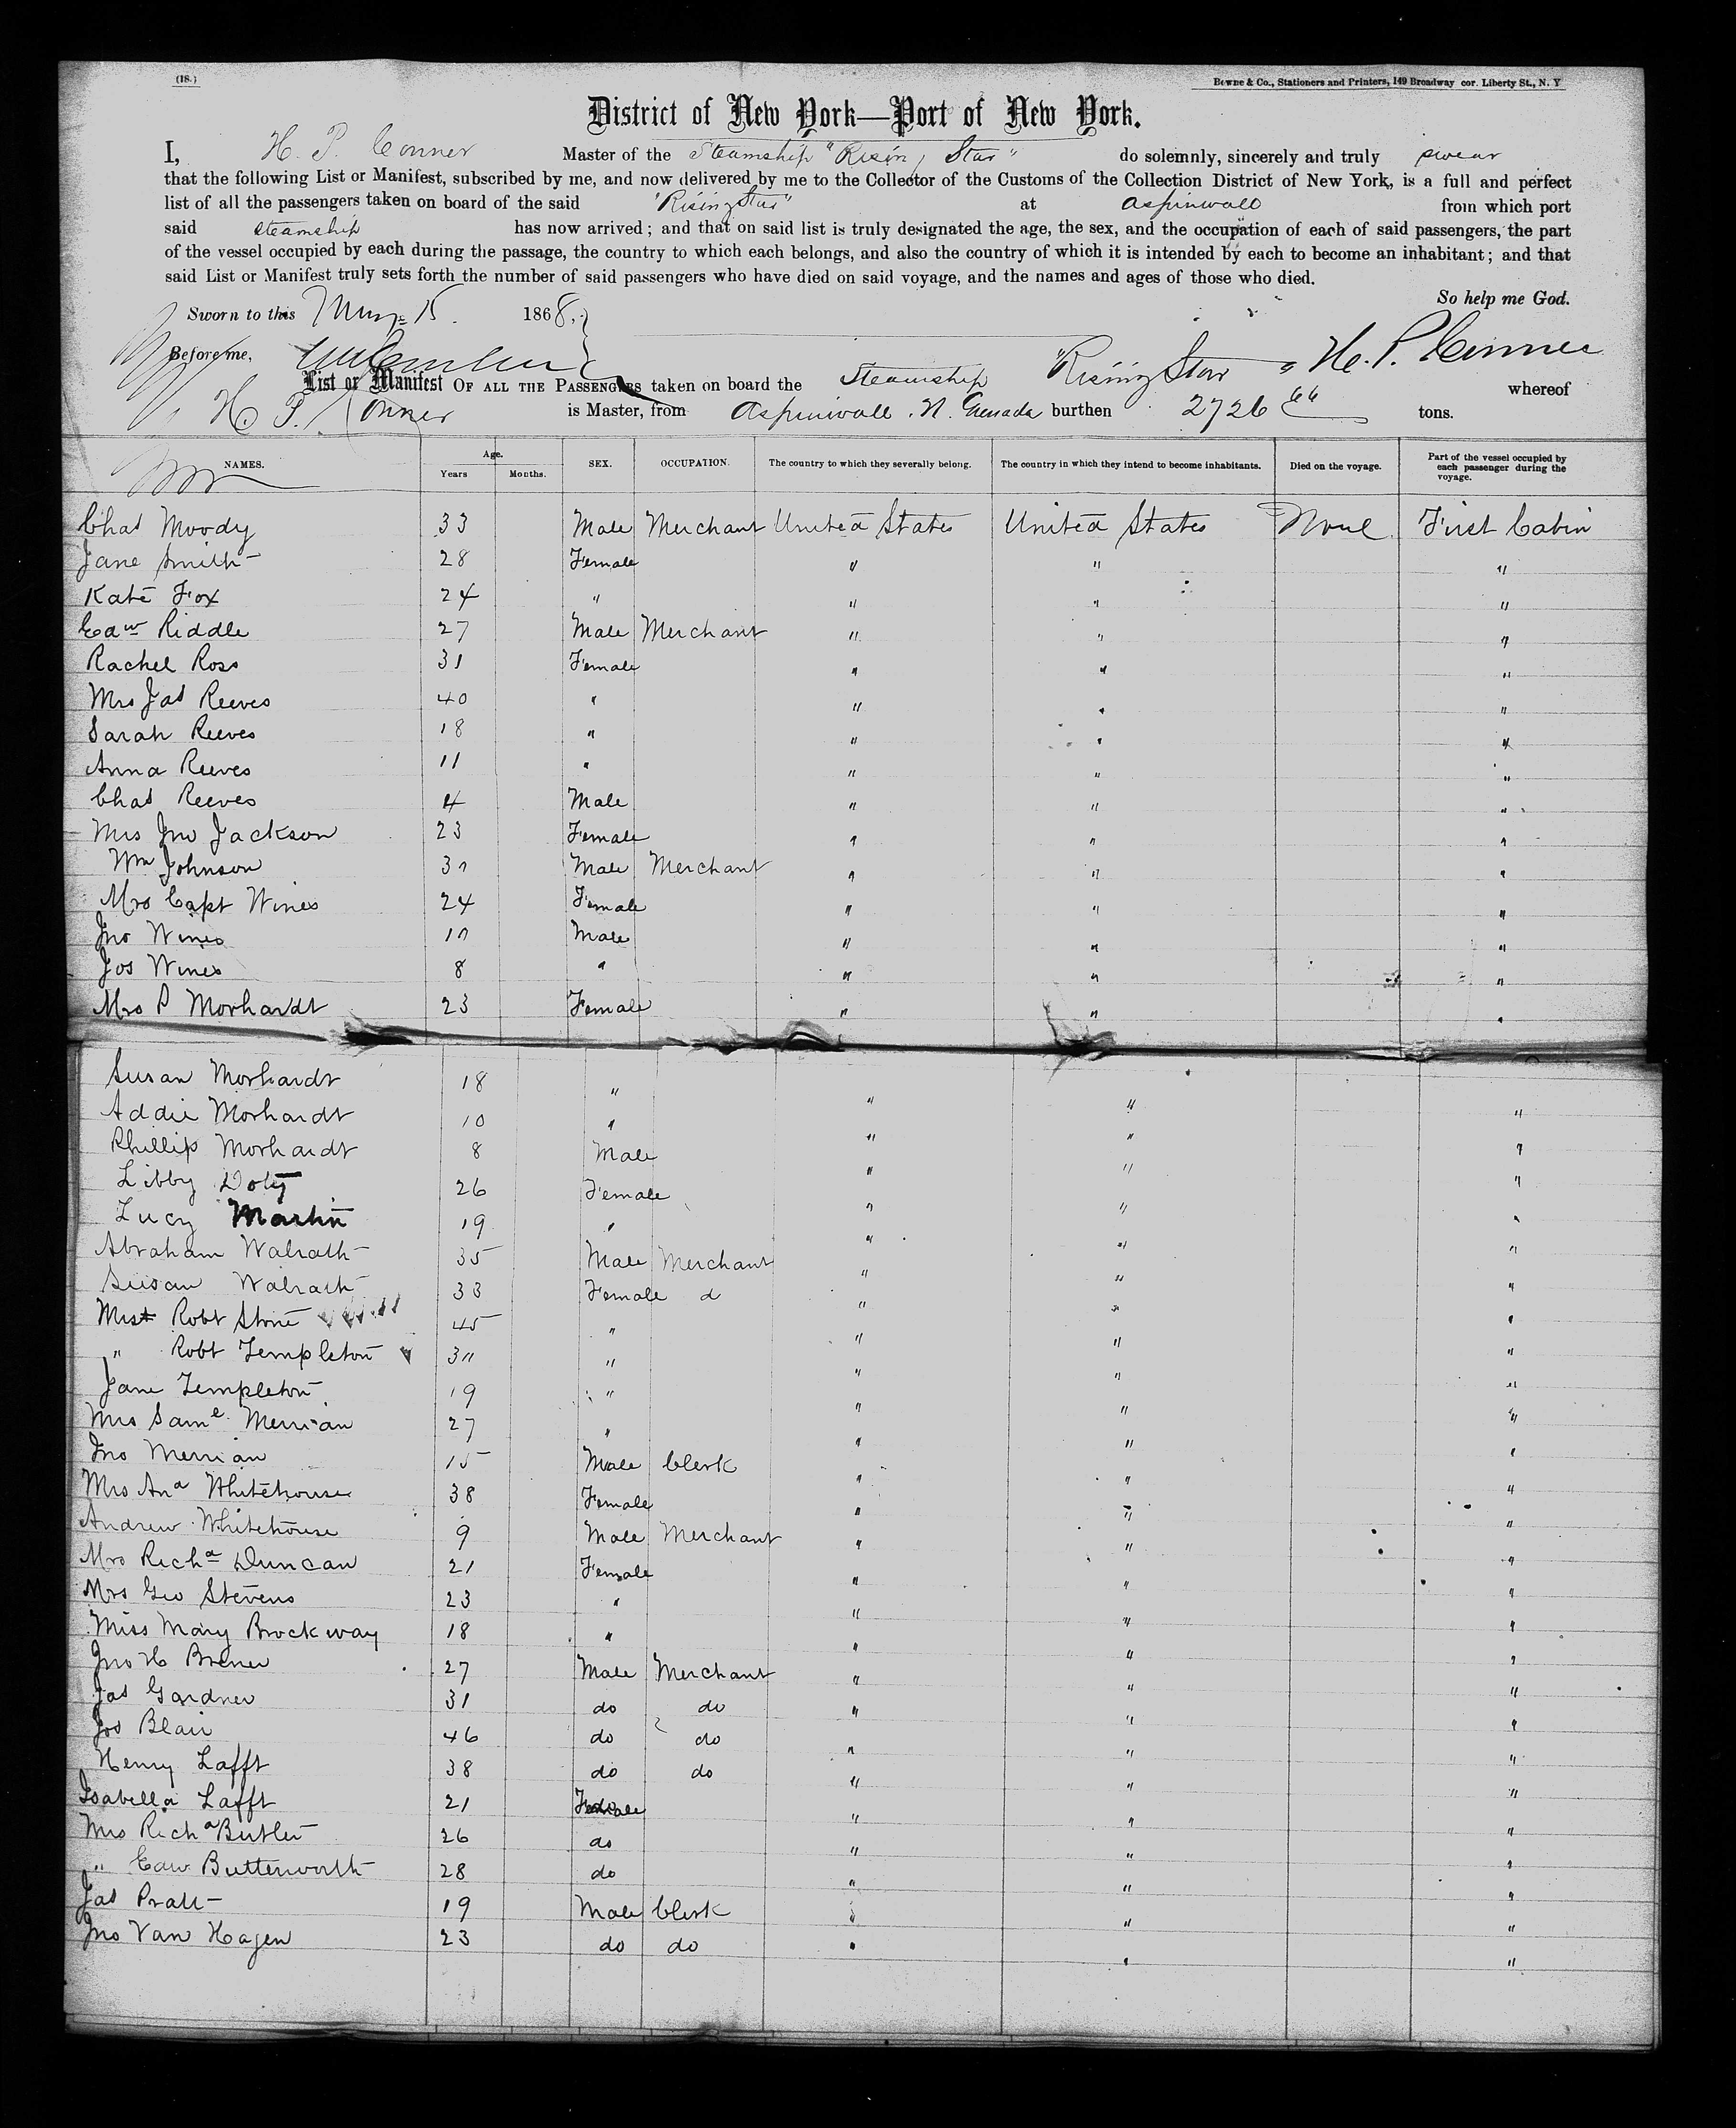 (18.)
Bowne & Co., Stationers and Printers, 149 Broadway cor. Liberty St., N. Y
District of New York—Port of New York.
I, H. P. Conner Master of the Steamship "Rising Star" do solemnly, sincerely and truly swear
that the following List or Manifest, subscribed by me, and now delivered by me to the Collector of the Customs of the Collection District of New York, is a full and perfect
list of all the passengers taken on board of the said "Rising Star" at Aspinwall from which port
said Steamship has now arrived; and that on said list is truly designated the age, the sex, and the occupation of each of said passengers, the part
of the vessel occupied by each during the passage, the country to which each belongs, and also the country of which it is intended by each to become an inhabitant; and that
said List or Manifest truly sets forth the number of said passengers who have died on said voyage, and the names and ages of those who died.
So help me God.
Sworn to this 15 1868,
Before me, H. P. Conner
List or Manifest OF ALL THE PASSENGERS taken on board the Steamship "Rising Star" whereof
H. P. Conner is Master, from Aspinwall N. Grenada burthen 2726 66 tons.
NAMES. Age. Years Months. SEX. OCCUPATION. The country to which they severally belong. The country in which they intend to become inhabitants. Died on the voyage. Part of the vessel occupied by each passenger during the voyage.
Chas Moody 33 Male Merchant United States United States None First Cabin
Jane Smith 28 Female " " "
Kate Fox 24 " " " "
Edw Riddle 27 Male Merchant " " "
Rachel Ross 31 Female " " "
Mrs Jas Reeves 40 " " " "
Sarah Reeves 18 " " " "
Anna Reeves 11 " " " "
Chas Reeves 4 Male " " "
Mrs Jno Jackson 23 Female " " "
Wm Johnson Male Merchant " " "
Mrs Capt Wines 24 Female " " "
Jno Wines Male " " "
Jos Wines 8 " " " "
Mrs P Morhardt 23 Female " " "
Susan Morhardt 18 " " " "
Addie Morhardt 10 " " " "
Phillip Morhardt 8 Male " " "
Libby Doty 26 Female " " "
Lucy Martin 19 " " " "
Abraham Walrath 35 Male Merchant " " "
Susan Walrath 33 Female d " " "
Mrs Robt Stone 45 " " " "
" Robt Templeton " " " "
Jane Templeton 19 " " " "
Mrs Saml Merrian 27 " " " "
Jno Merrian 15 Male Clerk " " "
Mrs And Whitehouse 38 Female " " "
Andrew Whitehouse 9 Male Merchant " " "
Mrs Richd Duncan 21 Female " " "
Mrs Geo Stevens 23 " " " "
Miss Mary Brockway 18 " " " "
Jno H 27 Male Merchant " " "
Jas Gardner 31 do do " " "
Jos Blair 46 do do " " "
Henry Lafft 38 do do " " "
Isabella Lafft 21 Female " " "
Mrs Richd Butler 26 do " " "
" Edw Butterworth 28 do " " "
Jas Pratt 19 Male Clerk " " "
Jno Van Hagen 23 do do " " "